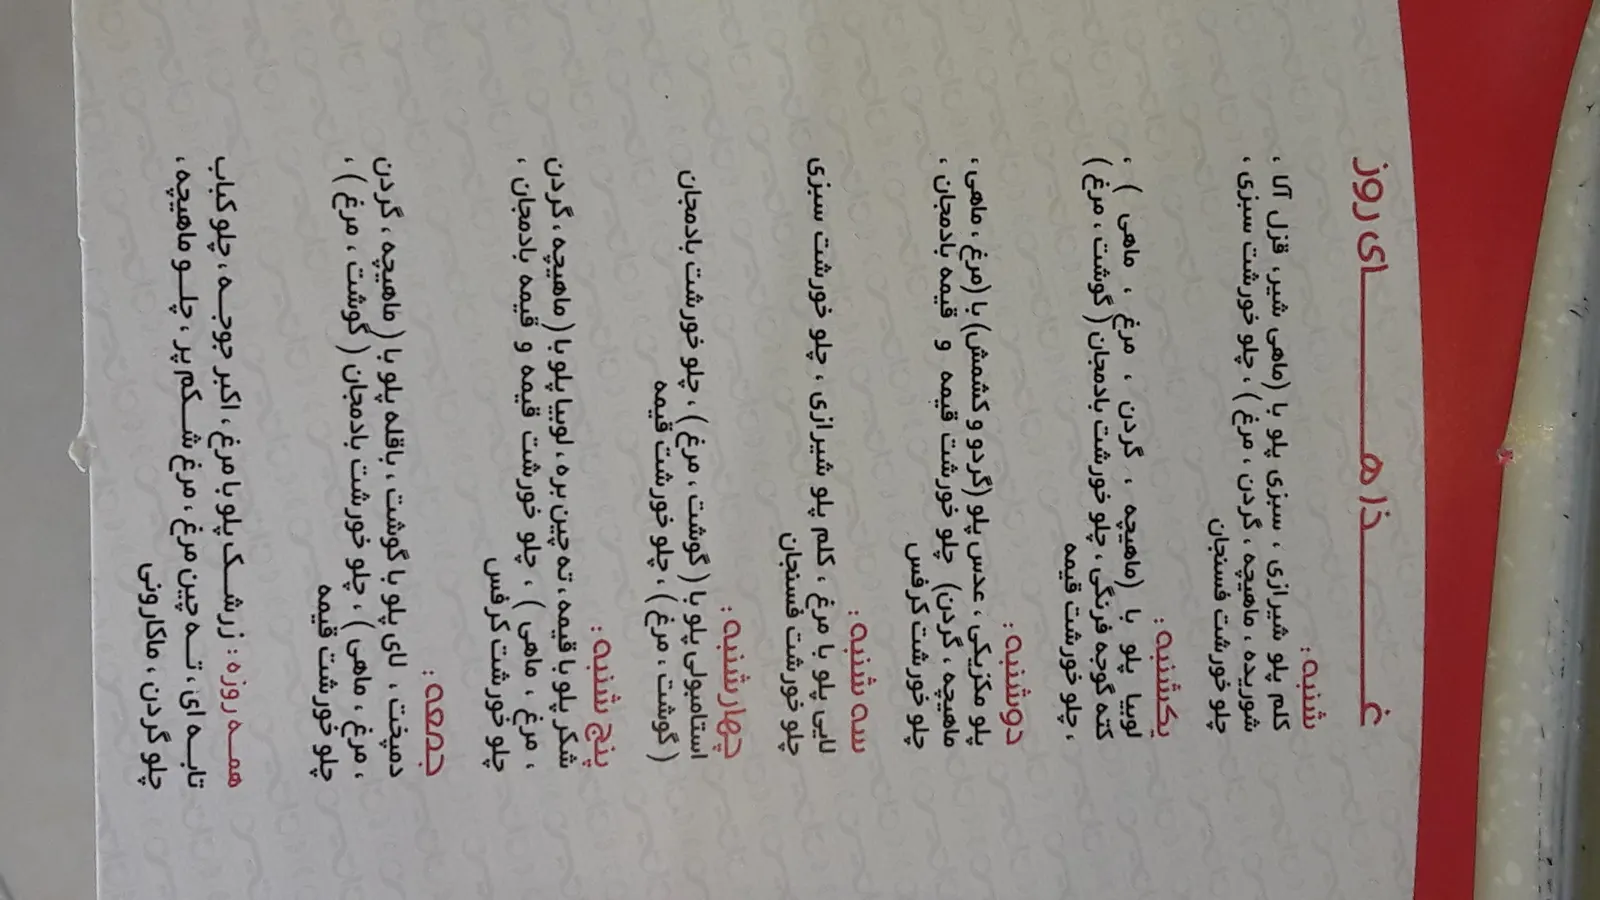 غذاهای روز
شنبه :
کلم پلو شیرازی ، سبزی پلو با (ماهی شیر، قزل آلا ،
شوریده ، ماهیچه ، گردن ، مرغ ) ، چلو خورشت سبزی ،
چلو خورشت فسنجان
یکشنبه :
لوبیا پلو با (ماهیچه ، گردن ، مرغ ، ماهی ) ،
کته گوجه فرنگی ، چلو خورشت بادمجان ( گوشت ، مرغ )
، چلو خورشت قیمه
دوشنبه :
پلو مکزیکی ، عدس پلو (گردو و کشمش) با (مرغ ، ماهی ،
ماهیچه ، گردن) چلو خورشت قیمه و قیمه بادمجان ،
چلو خورشت کرفس
سه شنبه :
لایی پلو با مرغ ، کلم پلو شیرازی ، چلو خورشت سبزی
چلو خورشت فسنجان
چهارشنبه :
استامبولی پلو با ( گوشت ، مرغ) ، چلو خورشت بادمجان
( گوشت ، مرغ ) ، چلو خورشت قیمه
پنج شنبه :
شکر پلو با قیمه ، ته چین بره ، لوبیا پلو با ( ماهیچه ، گردن
، مرغ ، ماهی ) ، چلو خورشت قیمه و قیمه بادمجان ،
چلو خورشت کرفس
جمعه :
دمپخت ، لای پلو با گوشت ، باقله پلو با ( ماهیچه ، گردن
، مرغ ، ماهی ) ، چلو خورشت بادمجان ( گوشت ، مرغ ) ،
چلو خورشت قیمه
همه روزه : زرشک پلو با مرغ ، اکبر جوجه ، چلو کباب
تابه ای ، ته چین مرغ ، مرغ شکم پر ، چلو ماهیچه ،
چلو گردن ، ماکارونی